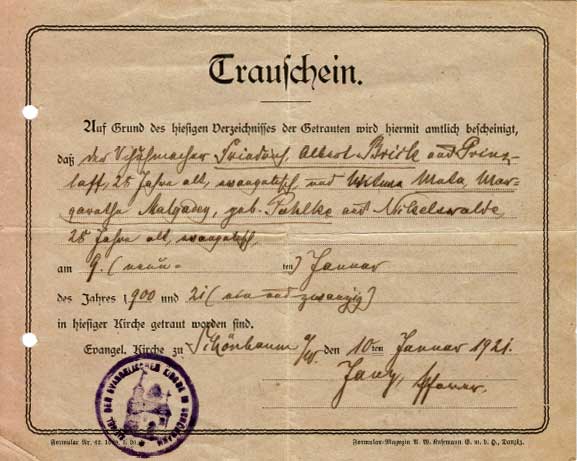 Trauschein.
Auf Grund des hiesigen Verzeichnisses der Getrauten wird hiermit amtlich bescheinigt,
daß der Schuhmacher Friedrich Albert Brick aus Prinz-
laff, 25 Jahre alt, evangelisch und Wilma Meta, Mar-
garethe geb. Pahlke aus Nikelswalde
25 Jahre alt, evangelisch,
am 9. (neun- ten) Januar
des Jahres 1900 und 21 (ein und zwanzig)
in hiesiger Kirche getraut worden sind.
Evangel. Kirche zu Schönbaum a/W. den 10ten Januar 1921.
Pfarrer.
SIEGEL DER EVANGELISCHEN KIRCHE ZU SCHÖNBAUM
Formular Nr. 42.
Formular-Magazin A. W. Kafemann G. m. b. H., Danzig.